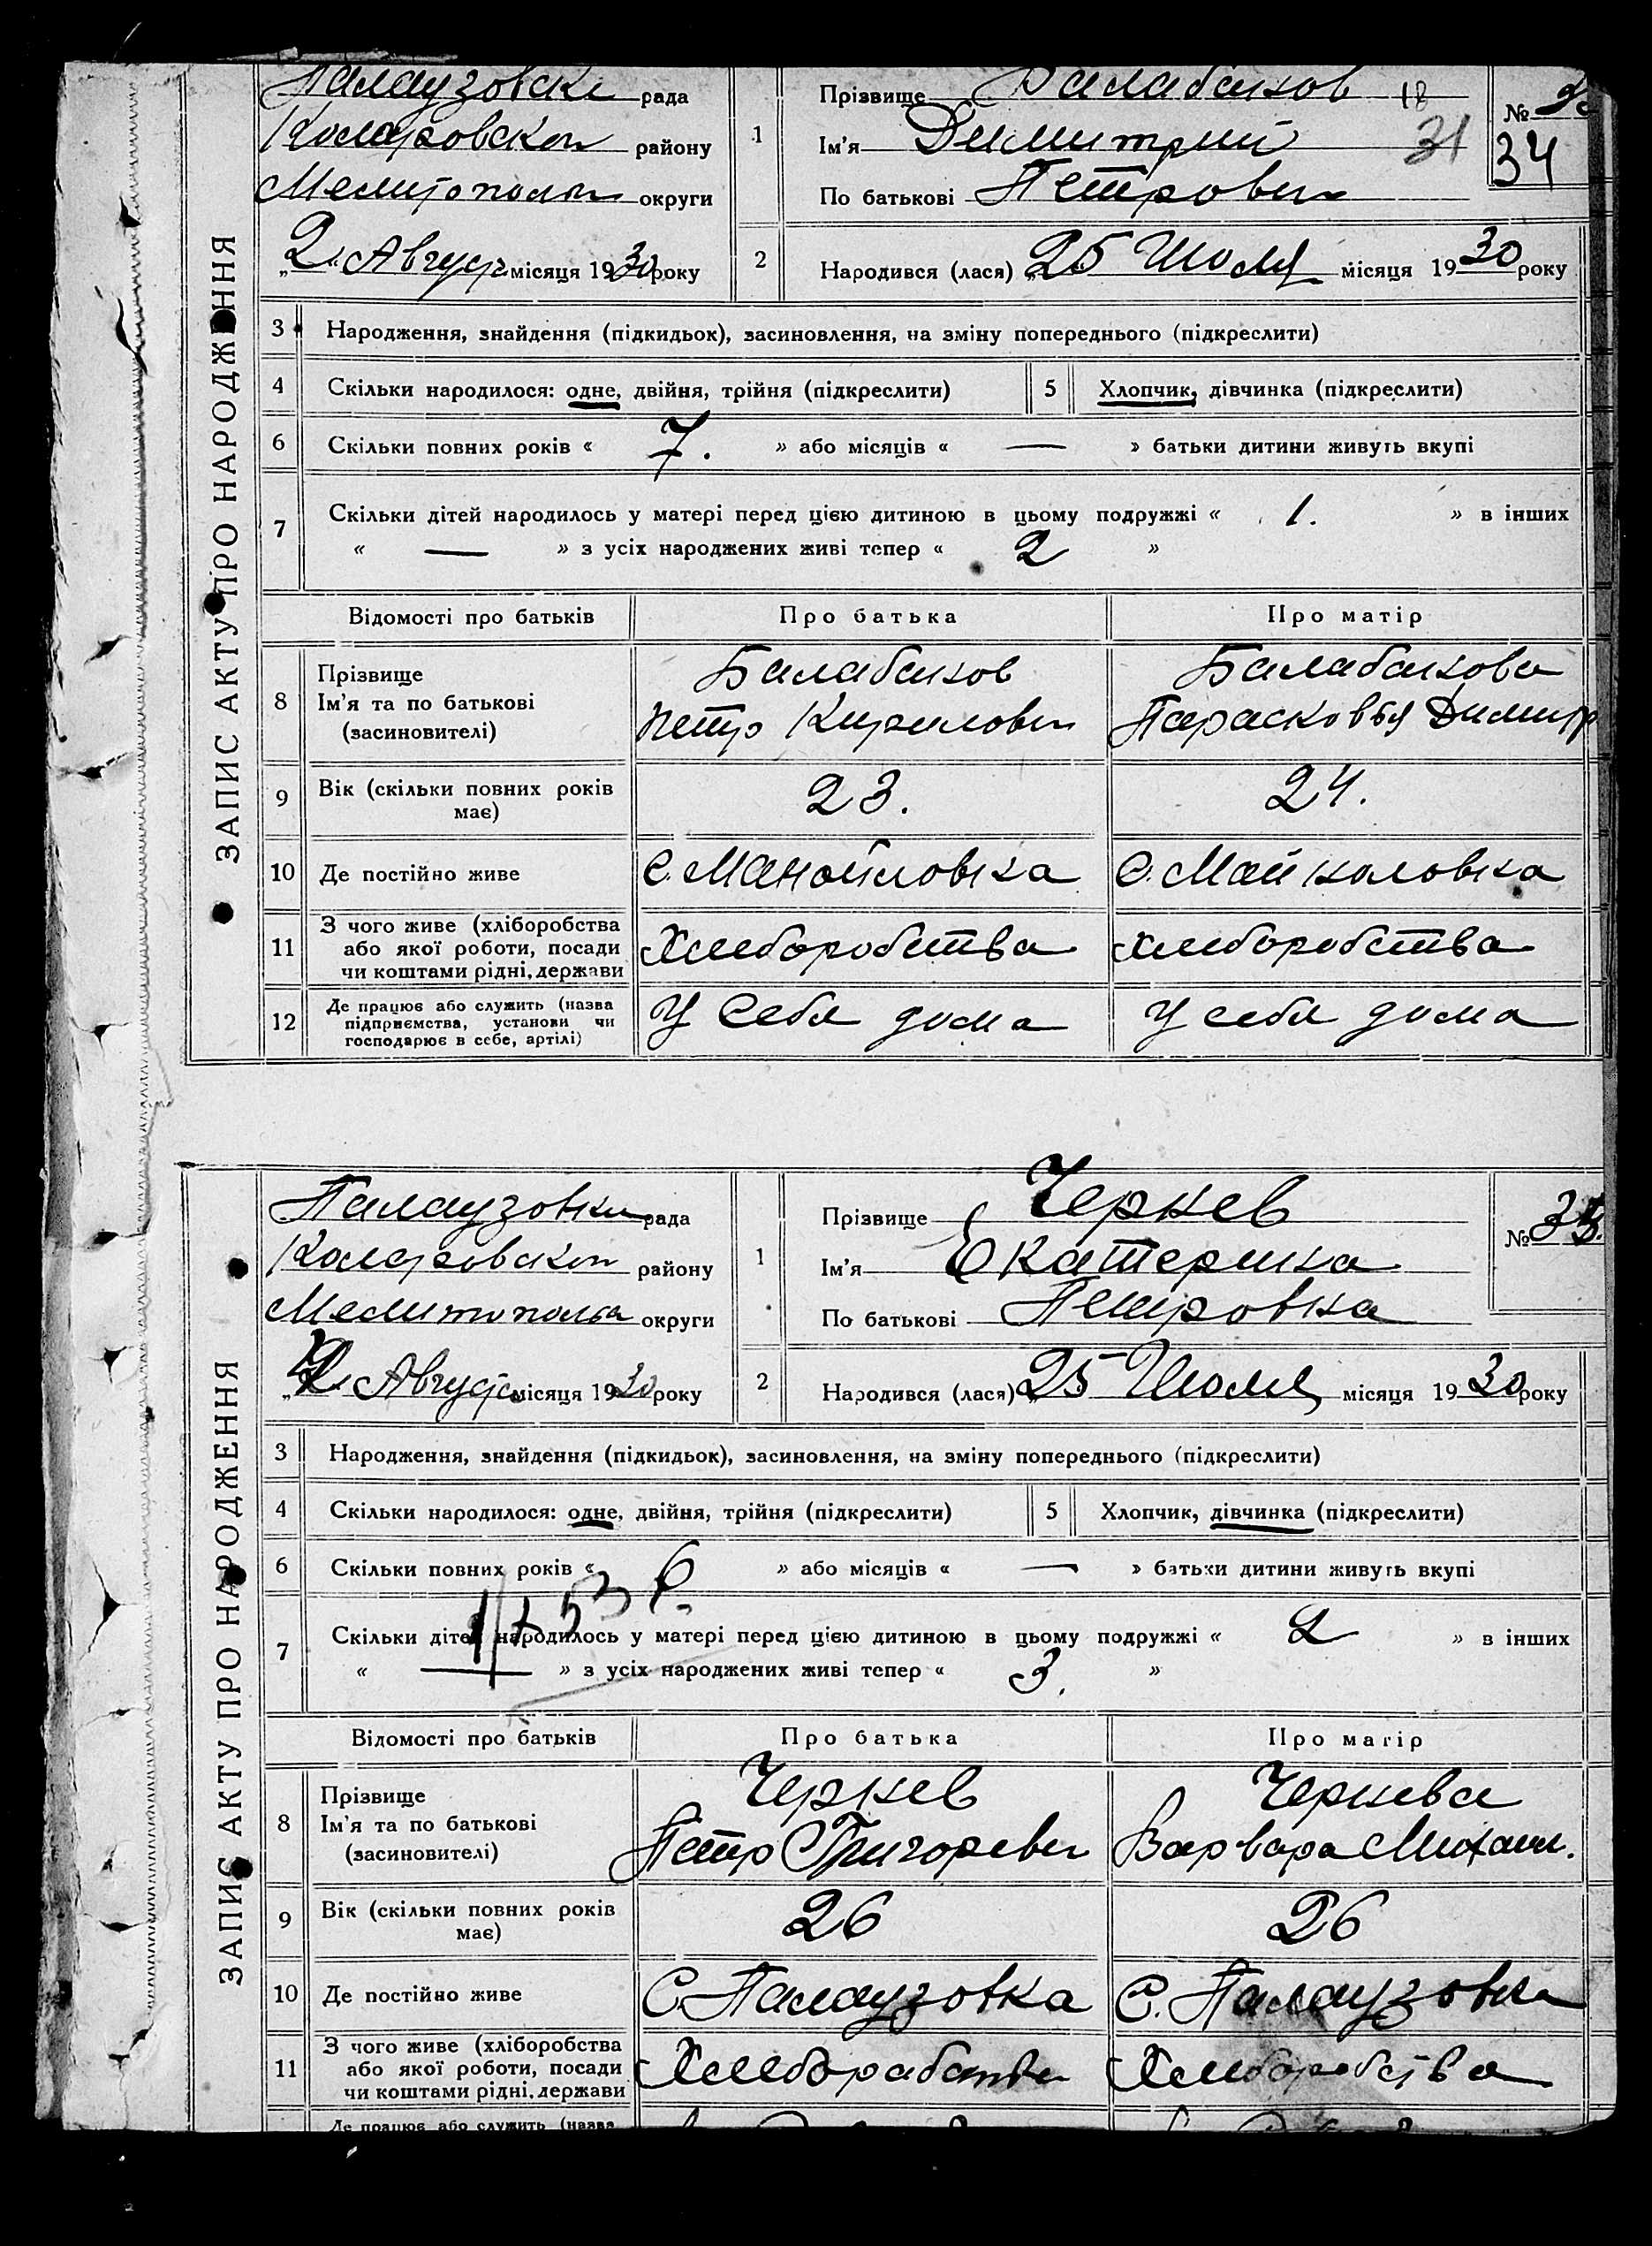 ЗАПИС АКТУ ПРО НАРОДЖЕННЯ
Палаузовске рада
Коларовском району
Мелитополь округи
„2“ Август місяця 1930 року
1
Прізвище Балабанов 18
Ім'я Димитрий 31
По батькові Петрович
№
34
2
Народився (лася) „25 Июля місяця 1930 року
3 Народження, знайдення (підкидьок), засиновлення, на зміну попереднього (підкреслити)
4 Скільки народилося: одне, двійня, трійня (підкреслити) 5 Хлопчик, дівчинка (підкреслити)
6 Скільки повних років « 7. » або місяців « — » батьки дитини живуть вкупі
7 Скільки дітей народилось у матері перед цією дитиною в цьому подружжі « 1. » в інших
« — » з усіх народжених живі тепер « 2 »
Відомості про батьків Про батька Про матір
8 Прізвище
Ім'я та по батькові
(засиновителі)
Балабанов
Петр Кирилович
Балабанова
Парасковья Димитр
9 Вік (скільки повних років
має)
23. 24.
10 Де постійно живе С. Манойловка С. Майноловка
11 З чого живе (хліборобства
або якої роботи, посади
чи коштами рідні, держави
Хлеборобства Хлеборобства
12 Де працює або служить (назва
підприємства, установи чи
господарює в себе, артілі)
У Себя дома У себя дома
ЗАПИС АКТУ ПРО НАРОДЖЕННЯ
Палаузовка рада
Коларовском району
Мелитополь округи
„2“ Август місяця 1930 року
1
Прізвище Чернев
Ім'я Екатерина
По батькові Петровна
№ 35.
2
Народився (лася) „25 Июля місяця 1930 року
3 Народження, знайдення (підкидьок), засиновлення, на зміну попереднього (підкреслити)
4 Скільки народилося: одне, двійня, трійня (підкреслити) 5 Хлопчик, дівчинка (підкреслити)
6 Скільки повних років « 6 » або місяців « — » батьки дитини живуть вкупі
7 Скільки дітей народилось у матері перед цією дитиною в цьому подружжі « 2 » в інших
« — » з усіх народжених живі тепер « 3. »
Відомості про батьків Про батька Про матір
8 Прізвище
Ім'я та по батькові
(засиновителі)
Чернев
Петр Григоревич
Чернева
Варвара Михаил.
9 Вік (скільки повних років
має)
26 26
10 Де постійно живе С. Палаузовка С. Палаузовка
11 З чого живе (хліборобства
або якої роботи, посади
чи коштами рідні, держави
Хлеборабства Хлеборобства
Де працює або служить (назва